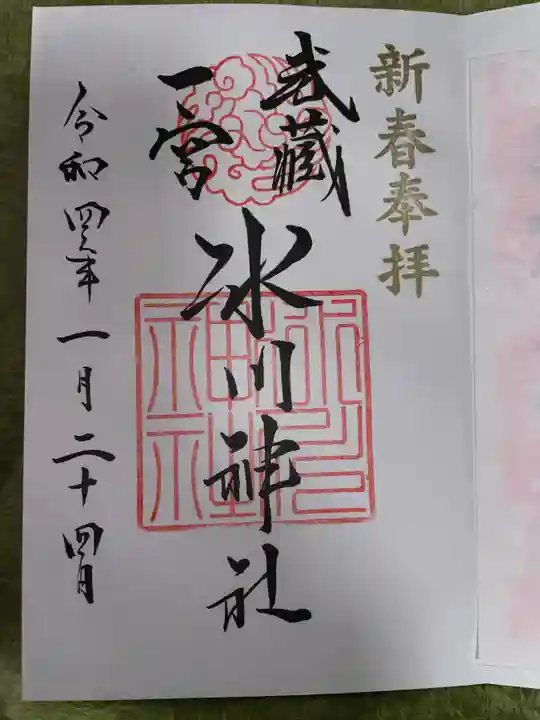 新春奉拝
武蔵
一宮
氷川神社
令和四年一月二十四日
氷川
神社